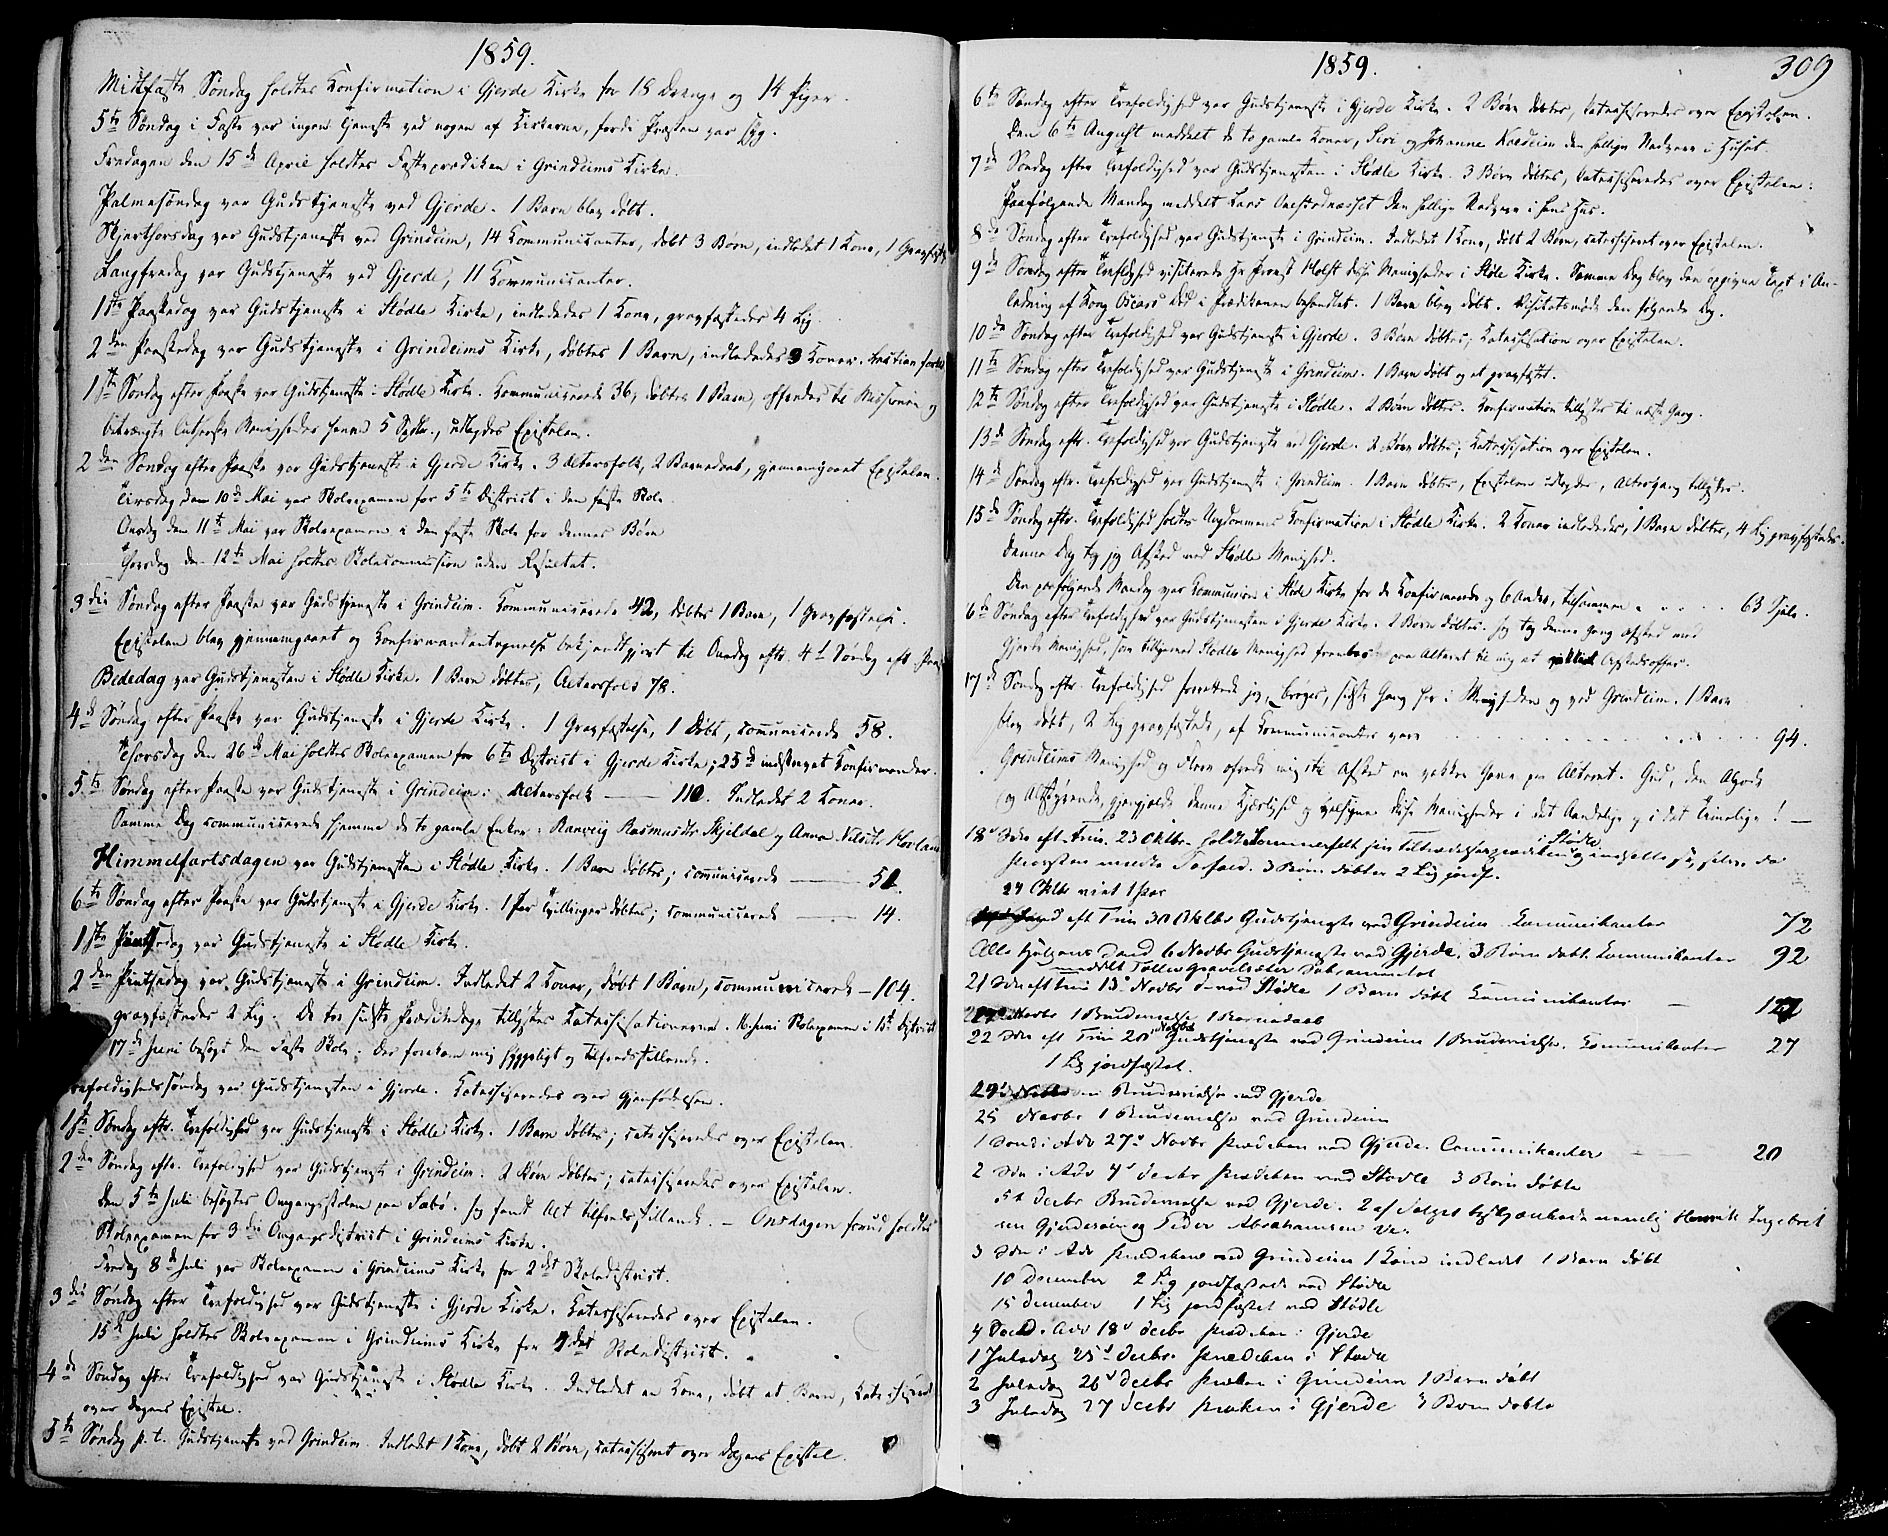 1859.
Midtfaste Søndag holdtes Konfirmation i Gjerde Kirke for 18 Drenge og 14 Piger.
5te Søndag i Faste var ingen Tjeneste ved nogen af Kirkerne, fordi Præsten var syg.
Fredagen den 15de April holdtes Fasteprædiken i Grindeims Kirke.
Palmesøndag var Gudstjeneste ved Gjerde. 1 Barn blev døbt.
Skjærthorsdag var Gudstjeneste ved Grindeim, 14 Kommunicanter, døbt 3 Børn, indledet 1 Kone, 1 Gravfæstet
Langfredag var Gudstjeneste ved Gjerde, 11 Kommunicanter.
1ste Paaskedag var Gudstjeneste i Stødle Kirke, indlededes 1 Kone, gravfæstedes 4 Lig.
2den Paaskedag var Gudstjeneste i Grindeims Kirke, døbtes 1 Barn, indlededes 3 Koner.
1ste Søndag efter Paaske var Gudstjeneste i Stødle Kirke. Kommunicerede 36, døbtes 1 Barn, offredes til Missionen og
betrængte lutherske Menigheder henved 5 Spdlr., udlagdes Epistelen.
2den Søndag efter Paaske var Gudstjeneste i Gjerde Kirke. 3 Altersfolk, 2 Barnedaab, gjennemgaaet Epistelen.
Tirsdag den 10de Mai var Skoleexamen for 5te District i den faste Skole
Onsdag den 11te Mai var Skoleexamen i den faste Skole for dennes Børn
Thorsdag den 12te Mai holdtes Skolecommission uden Resultat.
3die Søndag efter Paaske var Gudstjeneste i Grindeim. Kommunicerede 42, døbtes 1 Barn, 1 Gravfæstelse.
Epistelen blev gjennemgaaet og Konfirmandantagelse bekjendtgjort til Onsdag eftr. 4de Søndag eft. Paas
Bededag var Gudstjenesten i Stødle Kirke. 1 Barn døbtes, Altersfolk 78.
4de Søndag efter Paaske var Gudstjeneste i Gjerde Kirke. 1 Gravfæstelse, 1 Døbt, communicerede 58.
Thorsdag den 26de Mai holdtes Skoleexamen for 6te District i Gjerde Kirke; 25de indskrevet Konfirmander.
5te Søndag efter Paaske var Gudstjeneste i Grindeim: Altersfolk — 110. Indledet 2 Koner.
Samme Dag communicerede hjemme de to gamle Enker: Ranveig Rasmusdtr Skjeldal og Anna Nilsdtr Hovland
Himmelfartsdagen var Gudstjenesten i Stødle Kirke. 1 Barn døbtes; communicerede — 51.
6te Søndag efter Paaske var Gudstjeneste i Gjerde Kirke. 1 Par Tvillinger døbtes; communicerede — 14.
1ste Pintsedag var Gudstjeneste i Stødle Kirke.
2den Pintsedag var Gudstjeneste i Grindeim. Indledet 2 Koner, døbt 1 Barn, communicerede — 104.
gravfæstedes 2 Lig. De to sidste Prædikedage tillystes Katechisationerne. 16. Juni Skoleexamen i 1ste District
17de Juni besøgt den Faste Skole; Der forekom mig hyggeligt og tilfredsstillende.
refoldighedssøndag var Gudstjenesten i Gjerde. Katechiseredes over Gjenfødelsen.
1ste Søndag eftr. Trefoldighed var Gudstjeneste i Stødle Kirke. 1 Barn døbtes; catechiseredes over Epistelen.
2den Søndag eftr. Trefoldighed var Gudstjeneste i Grindeim. 2 Børn døbtes; catechiseredes over Epistelen.
Den 5te Juli besøgtes Omgangsskolen paa Sæbø. Jeg fandt Alt tilfredsstillende. — Onsdagen holdtes
Skoleexamen for 3die Omgangsdistrict i Grindeims Kirke.
Fredag 8de Juli var Skoleexamen i Grindeims Kirke for 2det Skoledistrict.
3die Søndag efter Trefoldighed var Gudstjeneste i Gjerde Kirke. Katechiseredes over Epistelen.
15de Juli holdtes Skoleexamen i Grindeims Kirke for 4det Skoledistrict.
4de Søndag efter Trefoldighed var Gudstjeneste i Stødle Kirke. Indledet en Kone, døbt et Barn, katechiseret
over Dagens Epistel.
5te Søndag p. t. Gudstjeneste ved Grindeim. Indledet 1 Kone, døbt 2 Børn, catechiseret over Dagens Epistel.
1859.
309
6te Søndag efter Trefoldighed var Gudstjeneste i Gjerde Kirke. 2 Børn døbtes, katechiseredes over Epistelen.
Den 6te August meddelt de to gamle Koner, Siri og Johanne den hellige Nadvere i Huset
7de Søndag efter Trefoldighed var Gudstjenesten i Stødle Kirke. 3 Børn døbtes, katechiseredes over Epistelen.
Paafølgende Mandag meddelt Lars den hellige Nadvere i hans Hus.
8de Søndag efter Trefoldighed var Gudstjeneste i Grindeim. Indledet 1 Kone, døbt 2 Børn, catechiseret over Epistelen.
9de Søndag efter Trefoldighed visiterede Hr Provst Holst disse Menigheder i Støle Kirke. Samme Dag blev den opgivne Text i An-
ledning af Kong Oscars Død i Prædikenen behandlet. 1 Barn blev døbt. Visitatsmøde den følgende Dag.
10de Søndag efter Trefoldighed var Gudstjeneste i Gjerde. 3 Børn døbtes; Katechisation over Epistelen.
11te Søndag efter Trefoldighed var Gudstjeneste i Grindeim. 1 Barn døbt og et gravfæstet.
12te Søndag efter Trefoldighed var Gudstjeneste i Stødle. 2 Børn døbtes. Konfirmation tillystes til næste Gang.
13de Søndag eftr. Trefoldighed var Gudstjeneste ved Gjerde. 2 Børn døbtes; Katechisation over Epistelen.
14de Søndag eftr. Trefoldighed var Gudstjeneste i Grindeim. 1 Barn døbtes, Epistelen udlagdes, Altergang tillystes.
15de Søndag eftr. Trefoldighed holdtes Ungdommens Konfirmation i Stødle Kirke. 2 Koner indlededes, 1 Barn døbtes, 4 Lig gravfæstedes.
Denne Dag tog jeg Afsked med Stødle Menighed.
Den paafølgende Mandag var Kommunion i Støle Kirke for de Konfirmerede og 6 Andre, tilsammen . . . . . 63 Sjele.
6de Søndag efter Trefoldighed var Gudstjenesten i Gjerde Kirke. 2 Børn døbtes. Jeg tog denne Gang Afsked med
Gjerde Menighed, som tilligemed Stødle Menighed frembar paa Alteret til mig et Afskedsoffer.
17de Søndag eftr. Trefoldighed forrettede jeg, sidste Gang her i Menigheden og ved Grindeim. 1 Barn
blev døbt, 2 Lig gravfæstede, af Kommunicanter vare . . . . . . . . 94.
Grindeims Menighed og Flere ofrede mig til Afsked en vakker Gave paa Alteret. Gud, den Algode
og Altstyrende, gjengjælde denne Kjærlighed og velsigne disse Menigheder i det Aandelige og i det Timelige! —
18de Søn eft Trin. 23 Oktbr. holdt Sommerfelt sin Tiltrædelsesprædiken i Stødle
Provsten Forfald. 3 Børn døbte 2 Lig jordf.
24 Oktbr viet 1 Par
eft Trin 30 Oktbr Gudstjeneste ved Grindeim Communikanter 72
Alle Helgens Dag 6 Novbr Gudstjeneste ved Gjerde. 3 Børn døbt. Communikanter 92
meddelt Sakramentet
21 Søn eft Trin 13 Novbr ved Stødle 1 Barn døbt Communikanter
Novbr 1 Brudevielse 1 Barnedaab
22 Søn eft Trin 20 Novbr Gudstjeneste ved Grindeim 1 Brudevielse. Communikanter 27
1 Lig jordfæstet.
Brudevielse ved Gjerde
25 Novbr 1 Brudevielse ved Grindeim
1 Sønd i Adv 27de Novbr Prædiken ved Gjerde. Communikanter — — 20
2 Søn i Adv 4de Decbr Prædiken ved Stødle 3 Børn døbte
5te Decbr Brudevielse ved Gjerde. nemlig Henrik Ingebret
sen Gjerde og Peder Abrahamsen
3 Søn i Adv Prædiken ved Grindeim 1 Kone indledet 1 Barn døbt
10 December 2 Lig jordfæstede ved Stødle
15 December 1 Lig jordfæstet ved Stødle
4 Sønd. Adv 18de Decbr Prædiken i Gjerde
1 Juledag 25de Decbr. Prædiken i Stødle
2 Juledag 26de Decbr Præken i Grindeim 1 Barn døbt
3 Juledag 27 Decbr Præken i Gjerde 3 Børn døbte